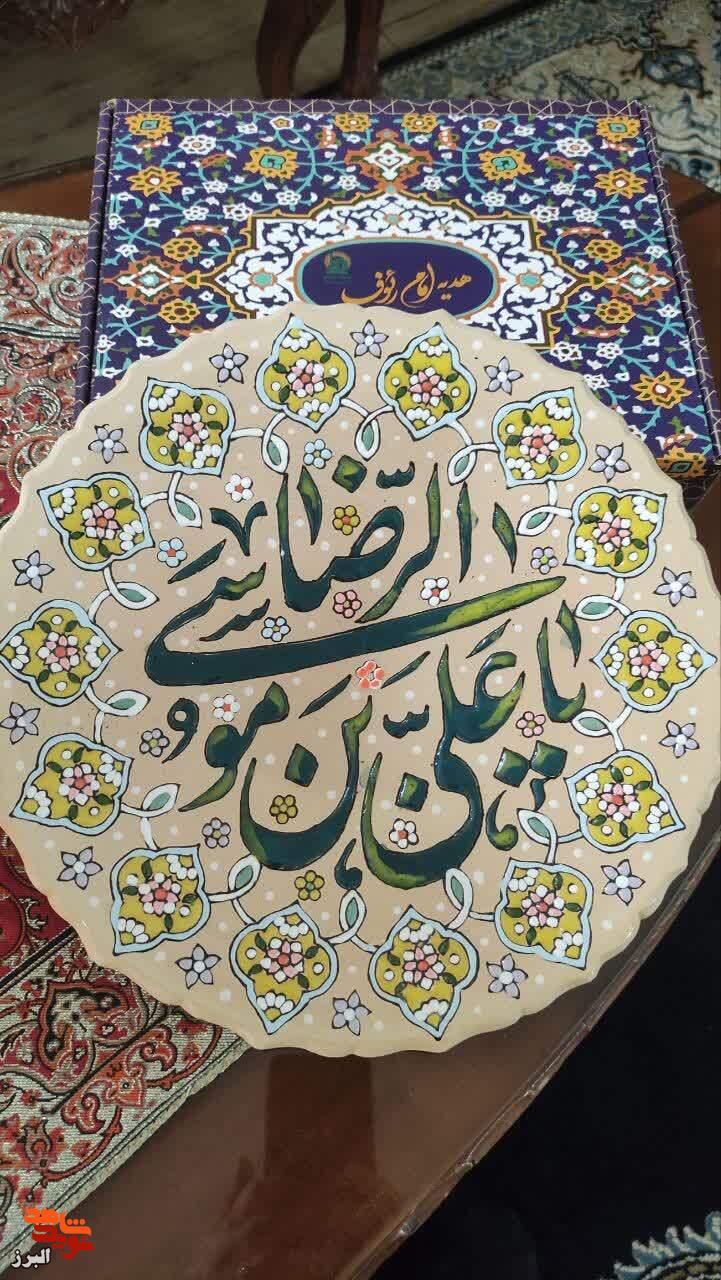 هدیه امام رئوف
یا علی بن موسی الرضا
نوید شاهد
البرز